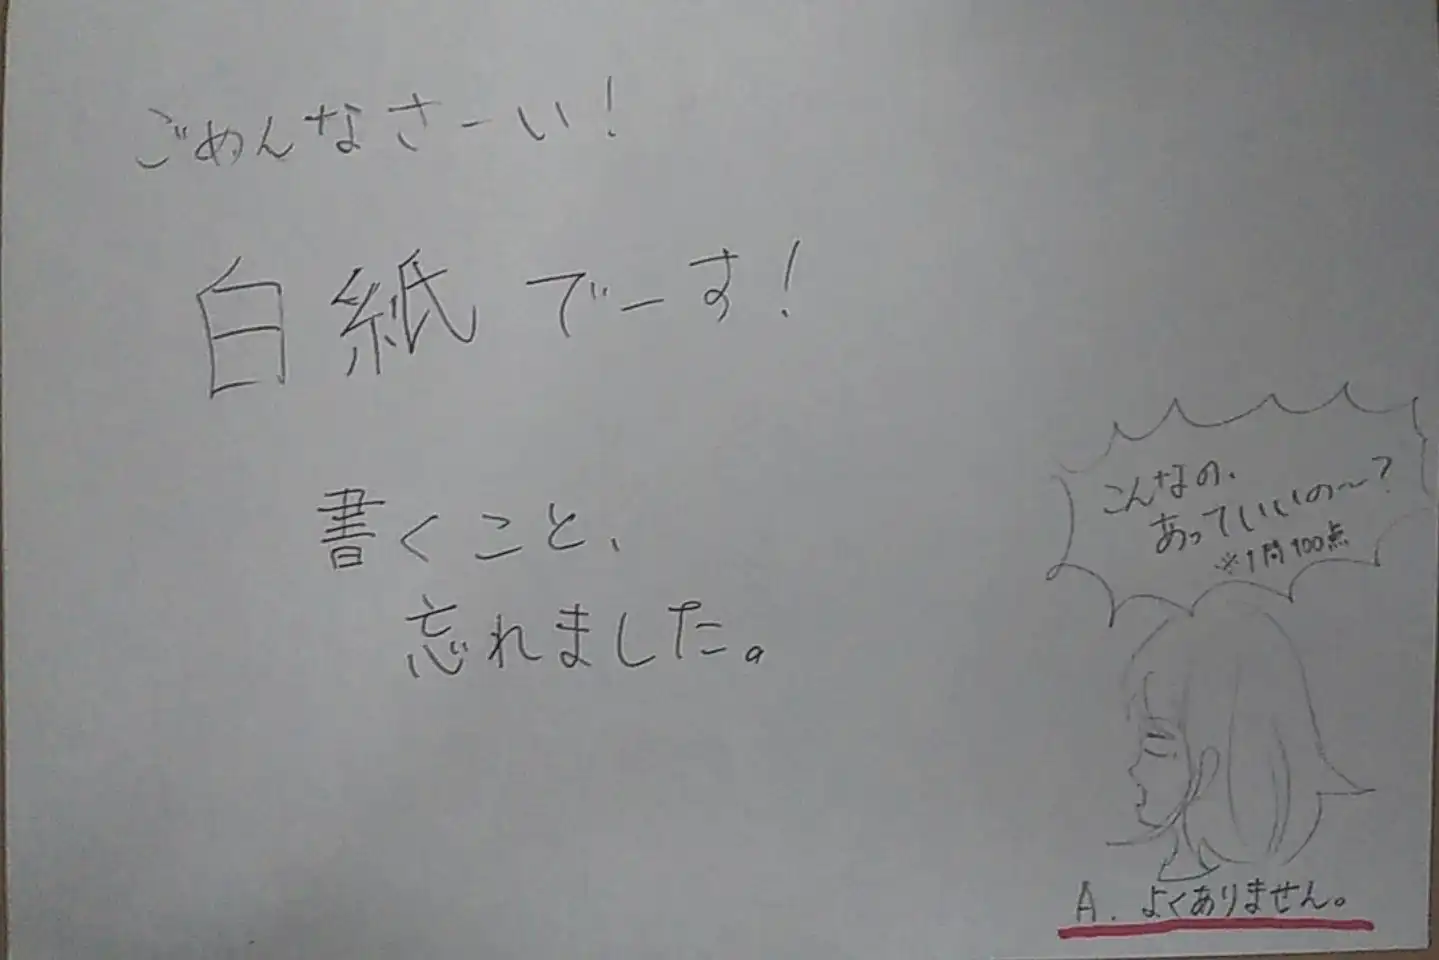 ごめんなさーい！
白紙でーす！
書くこと、
忘れました。
こんなの、
あっていいの〜？
※1問100点
A. よくありません。